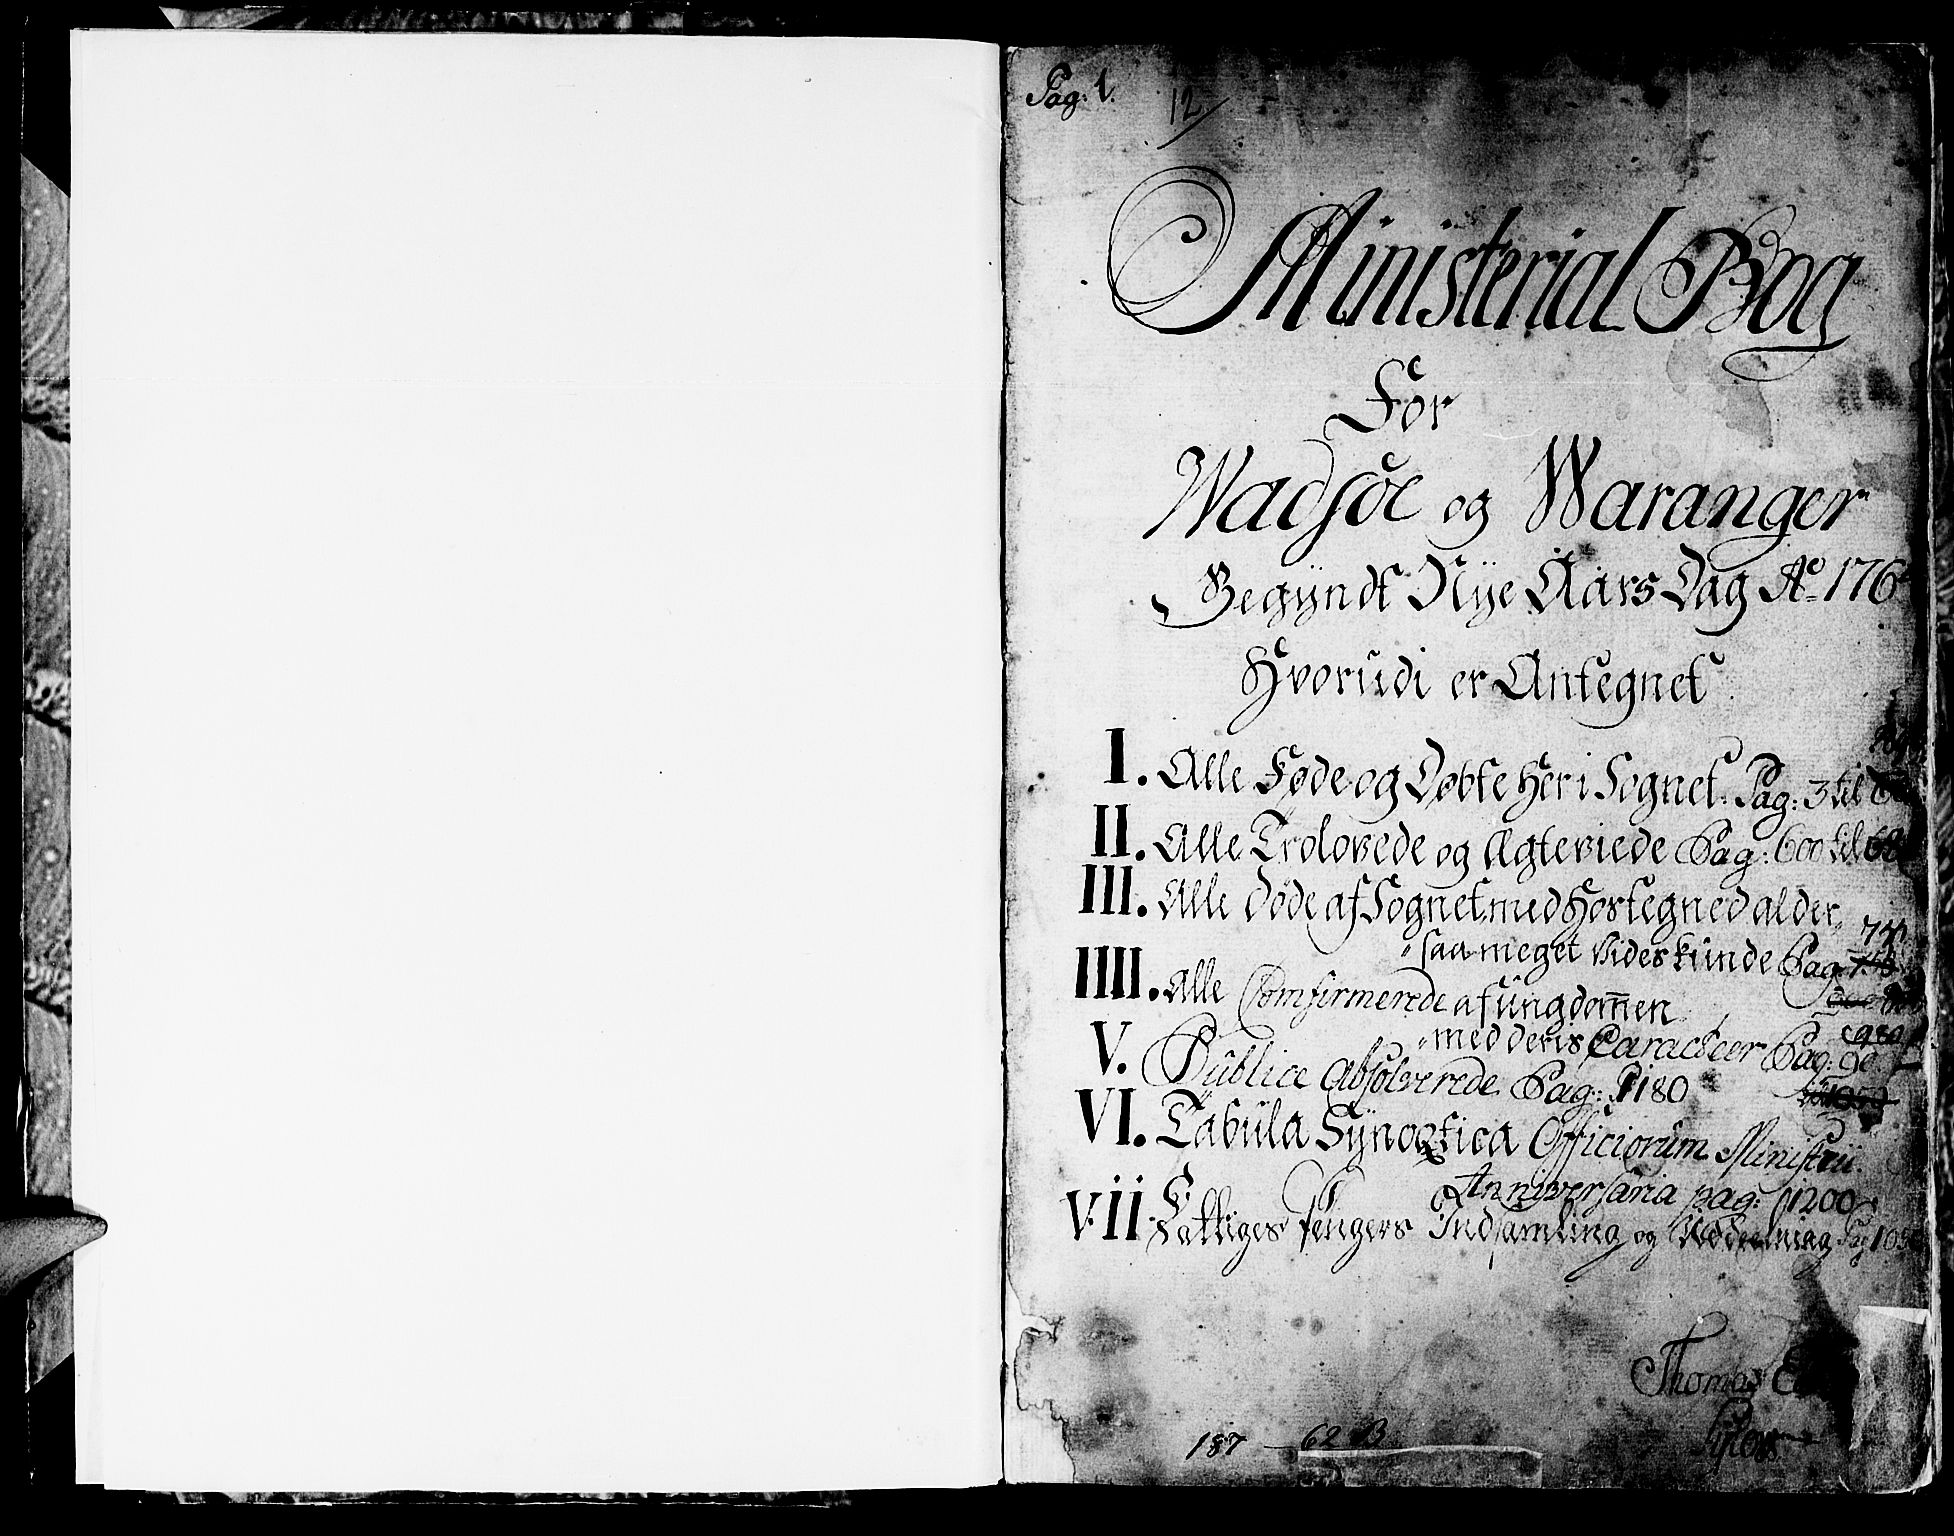 Pag: 1. 12
Ministerial Bog
For
Wadsöe og Waranger
Begyndt Nye Aars Dag Aº 176
Hvorudi er Antegnet
I. Alle Føde og Døbte Her i Sognet. Pag: 3 til
II. Alle Trolovede og Ægteviede Pag: 600 til
III. Alle døde af Sognet, med Hostegned alder,
saa meget Vides kunde Pag:
IIII. Alle Comfirmerede af Ungdom̅en
med deris Caracteer Pag:
V. Publice Absolverede Pag: 1180
VI. Tabula Synoptica Officiorum Ministrii
Anniversaria pag: 1200
Vii Fattiges Pengers Indsamling og Uddeelning
Thomas
187 — 62 B